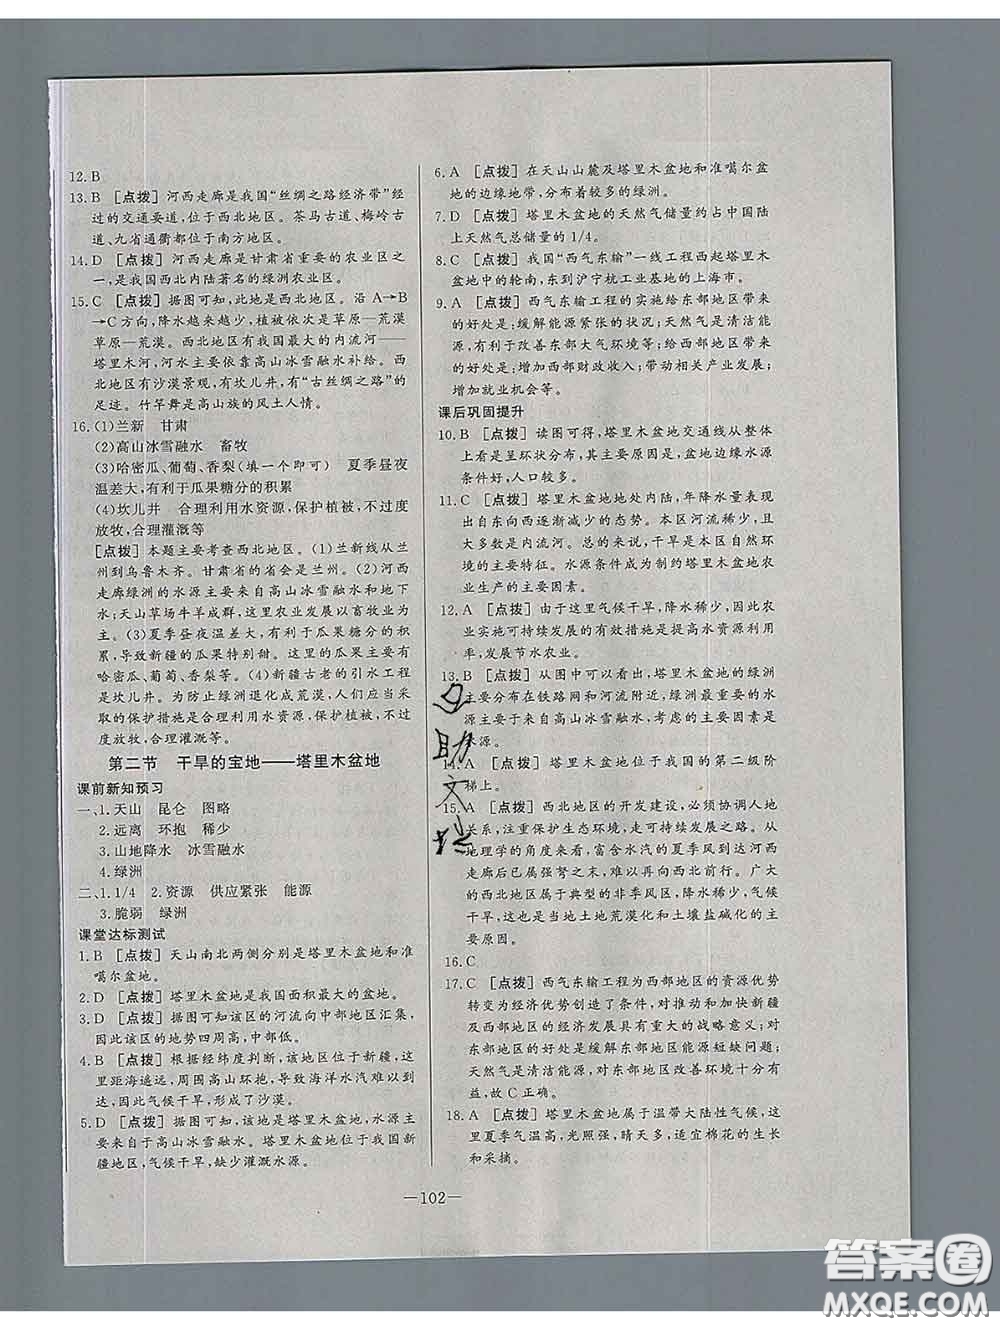 12. B
13. B [点拨] 河西走廊是我国“丝绸之路经济带”经
过的交通要道,位于西北地区。茶马古道、梅岭古
道、九省通衢都位于南方地区。
14. D [点拨] 河西走廊是甘肃省重要的农业区之
一,是我国西北内陆著名的绿洲农业区。
15. C [点拨] 据图可知,此地是西北地区。沿 A→B
→C 方向,降水越来越少,植被依次是草原—荒漠
草原—荒漠。西北地区有我国最大的内流河——
塔里木河,河水主要依靠高山冰雪融水补给。西
北地区有沙漠景观,有坎儿井,有“古丝绸之路”的
足迹。竹竿舞是高山族的风土人情。
16. (1)兰新 甘肃
(2)高山冰雪融水 畜牧
(3)哈密瓜、葡萄、香梨(填一个即可) 夏季昼夜
温差大,有利于瓜果糖分的积累
(4)坎儿井 合理利用水资源,保护植被,不过度
放牧,合理灌溉等
[点拨] 本题主要考查西北地区。(1)兰新线从兰
州到乌鲁木齐。甘肃省的省会是兰州。(2)河西
走廊绿洲的水源主要来自高山冰雪融水和地下
水;天山草场牛羊成群,这里农业发展以畜牧业为
主。(3)夏季昼夜温差大,有利于瓜果糖分的积
累,导致新疆的瓜果特别甜。这里的瓜果主要有
哈密瓜、葡萄、香梨等。(4)新疆古老的引水工程
是坎儿井。为防止绿洲退化成荒漠,人们应当采
取的保护措施是合理利用水资源,保护植被,不过度
放牧,合理灌溉等。
第二节 干旱的宝地——塔里木盆地
课前新知预习
一、1. 天山 昆仑 图略
2. 远离 环抱 稀少
3. 山地降水 冰雪融水
4. 绿洲
二、1. 1/4 2. 资源 供应紧张 能源
3. 脆弱 绿洲
课堂达标测试
1. B [点拨] 天山南北两侧分别是塔里木盆地和准
噶尔盆地。
2. D [点拨] 塔里木盆地是我国面积最大的盆地。
3. D [点拨] 据图可知该区的河流向中部地区汇集,
因此该区的地势四周高,中部低。
4. B [点拨] 根据经纬度判断,该地区位于新疆,这
里距海遥远,周围高山环抱,导致海洋水汽难以到
达,因此气候干旱,形成了沙漠。
5. D [点拨] 据图可知,该地区是塔里木盆地,水源主
要来自于高山冰雪融水。塔里木盆地位于我国新
疆地区,气候干旱,缺少灌溉水源。
6. A [点拨] 在天山山麓及塔里木盆地和准噶尔盆
地的边缘地带,分布着较多的绿洲。
7. D [点拨] 塔里木盆地的天然气储量约占中国陆
上天然气总储量的 1/4。
8. C [点拨] 我国“西气东输”一线工程西起塔里木
盆地中的轮南,东到沪宁杭工业基地的上海市。
9. A [点拨] 西气东输工程的实施给东部地区带来
的好处是:缓解能源紧张的状况;天然气是清洁能
源,有利于改善东部大气环境等;给西部地区带来
的好处是:增加西部财政收入;带动相关产业发展;
增加就业机会等。
课后巩固提升
10. B [点拨] 读图可得,塔里木盆地交通线从整体
上看是呈环状分布,其主要原因是,盆地边缘水源
条件好,人口较多。
11. C [点拨] 塔里木盆地地处内陆,年降水量表现
出自东向西逐渐减少的态势。本区河流稀少,且
大多数是内流河。总的来说,干旱是本区自然环
境的主要特征。水源条件成为制约塔里木盆地农
业生产的主要因素。
12. A [点拨] 由于这里气候干旱,降水稀少,因此农
业实施可持续发展的有效措施是提高水资源利用
率,发展节水农业。
13. B [点拨] 从图中可以看出,塔里木盆地的绿洲
主要分布在铁路网和河流附近,绿洲最重要的水
源主要来自于高山冰雪融水,最主要的因素是
水源。
14. A [点拨] 塔里木盆地位于我国的第二级阶
梯上。
15. A [点拨] 西北地区的开发建设,必须协调人地
关系,注重保护生态环境,走可持续发展之路。从
地理学的角度来看,富含水汽的夏季风到达河西
走廊后已属强弩之末,难以再向西北前行。广大
的西北地区属于典型的非季风区,降水稀少,气候
干旱,这也是当地土地荒漠化和土壤盐碱化的主
要原因。
16. C
17. C [点拨] 西气东输工程为西部地区的资源优势
转变为经济优势创造了条件,对推动和加快新疆
及西部地区的经济发展具有重大的战略意义;对
东部地区的好处是缓解东部地区能源短缺问题;
天然气是清洁能源,对东部地区改善环境十分有
益,故 C 正确。
18. A [点拨] 塔里木盆地属于温带大陆性气候,这
里夏季气温高,光照强,晴天多,适宜棉花的生长
和采摘。
—102—
答案圈
MXQE.COM